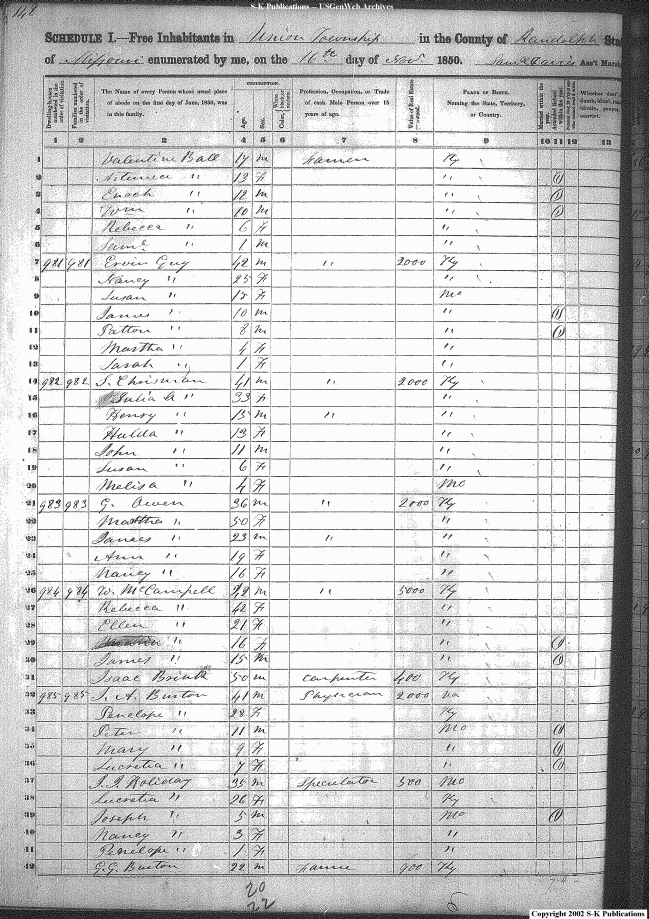 S-K Publications – USGenWeb Archives
148
SCHEDULE I.—Free Inhabitants in Union Township in the County of Randolph State
of Missouri enumerated by me, on the 16th day of Novr 1850. Ass't Marsh
Dwelling-houses numbered in the order of visitation. Families numbered in the order of visitation. The Name of every Person whose usual place of abode on the first day of June, 1850, was in this family. DESCRIPTION. Age. Sex. Color, Profession, Occupation, or Trade of each Male Person over 15 years of age. Value of Real Estate owned. PLACE OF BIRTH. Naming the State, Territory, or Country. Married within the year. Whether deaf
1 2 3 4 5 6 7 8 9 10 11 12 13
1 Valentine Ball 17 m Farmer Ky
2 " 13 F " (1)
3 Enoch " 12 m " (1)
4 Wm " 10 m " (1)
5 Rebecca " 6 F "
6 Saml " 1 m "
7 981 981 Ervin Guy 42 m " 2000 Ky
8 Nancy " 25 F "
9 Susan " F Mo
10 James " 10 m " (1)
11 Patton " 8 m " (1)
12 Martha " 4 F "
13 Sarah " 1 F "
14 982 982 Chrisman 41 m " 2000 Ky
15 Julia A " 33 F "
16 Henry " 15 m " "
17 Hulda " 13 F "
18 John " 11 m "
19 Susan " 6 F "
20 Melisa " 4 F Mo
21 983 983 G. Owen 36 m " 2000 Ky
22 Martha " 50 F "
23 James " 23 m " "
24 Ann " 19 F "
25 Nancy " 16 F "
26 984 984 W. McCampell m " 5000 Ky
27 Rebecca " 42 F "
28 Ellen " 21 F "
29 " 16 F " (1)
30 James " 15 m " (1)
31 Isaac 50 m Carpenter 400 Ky
32 985 985 A. Burton 41 m Physician 2000 Va
33 Penelope " 28 F Ky
34 Peter " 11 m Mo (1)
35 Mary " 9 F " (1)
36 Lucretia " 7 F " (1)
37 Holiday 35 m Speculator 500 Mo
38 Lucretia " 26 F Ky
39 Joseph " 5 m Mo (1)
40 Nancy " 3 F "
41 Penelope " 1 F "
42 G.G. Burton 22 m Farmer 900 Ky
20
22
Copyright 2002 S-K Publications